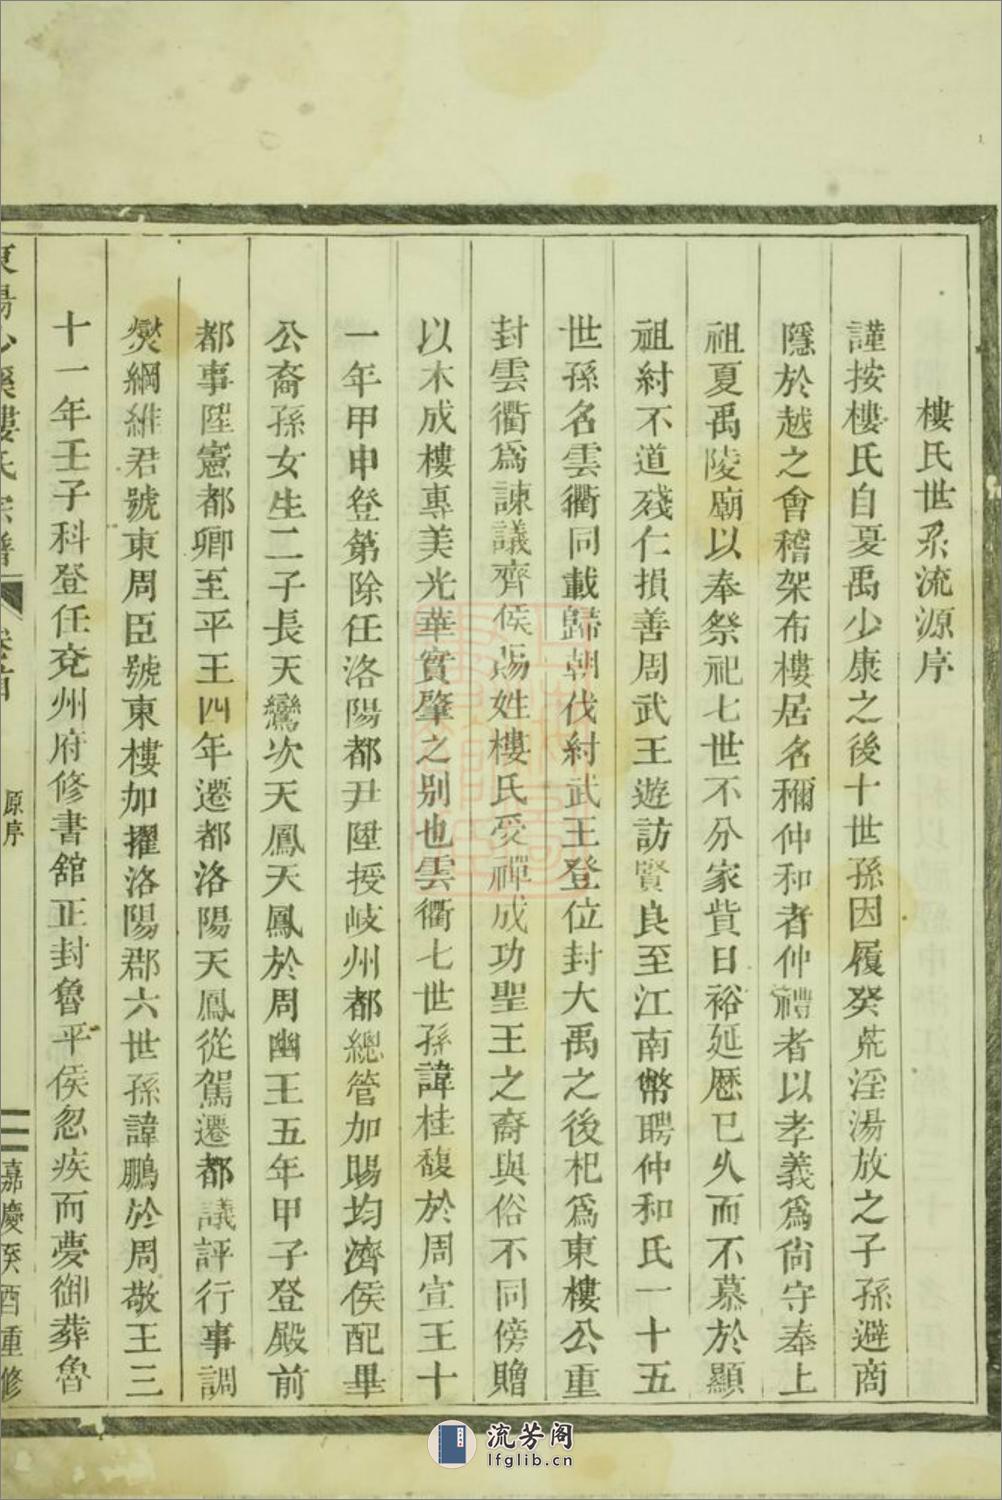 樓氏世系流源序
謹按樓氏自夏禹少康之後十世孫因履癸荒淫湯放之子孫避商
隱於越之會稽架布樓居名穪仲和者仲禮者以孝義爲尙守奉上
祖夏禹陵廟以奉祭祀七世不分家貲日裕延歷已久而不慕於顯
祖紂不道殘仁損善周武王遊訪賢良至江南幣聘仲和氏一十五
世孫名雲衢同載歸朝伐紂武王登位封大禹之後杞爲東樓公重
封雲衢爲諫議齊侯賜姓樓氏受禪成功聖王之裔與俗不同傍贈
以木成樓專美光華實肇之别也雲衢七世孫諱桂馥於周宣王十
一年甲申登第除任洛陽都尹陞授岐州都總管加賜均濟侯配畢
公裔孫女生二子長天鸞次天鳳天鳳於周幽王五年甲子登殿前
都事陞憲都卿至平王四年遷都洛陽天鳳從駕遷都議評行事調
爕綱維君號東周臣號東樓加擢洛陽郡六世孫諱鵬於周敬王三
十一年壬子科登任兗州府修書舘正封魯平侯忽疾而夢御葬魯
東陽少溪樓氏宗譜 卷首 原序 嘉慶癸酉重修
流芳阁
lfglib.cn